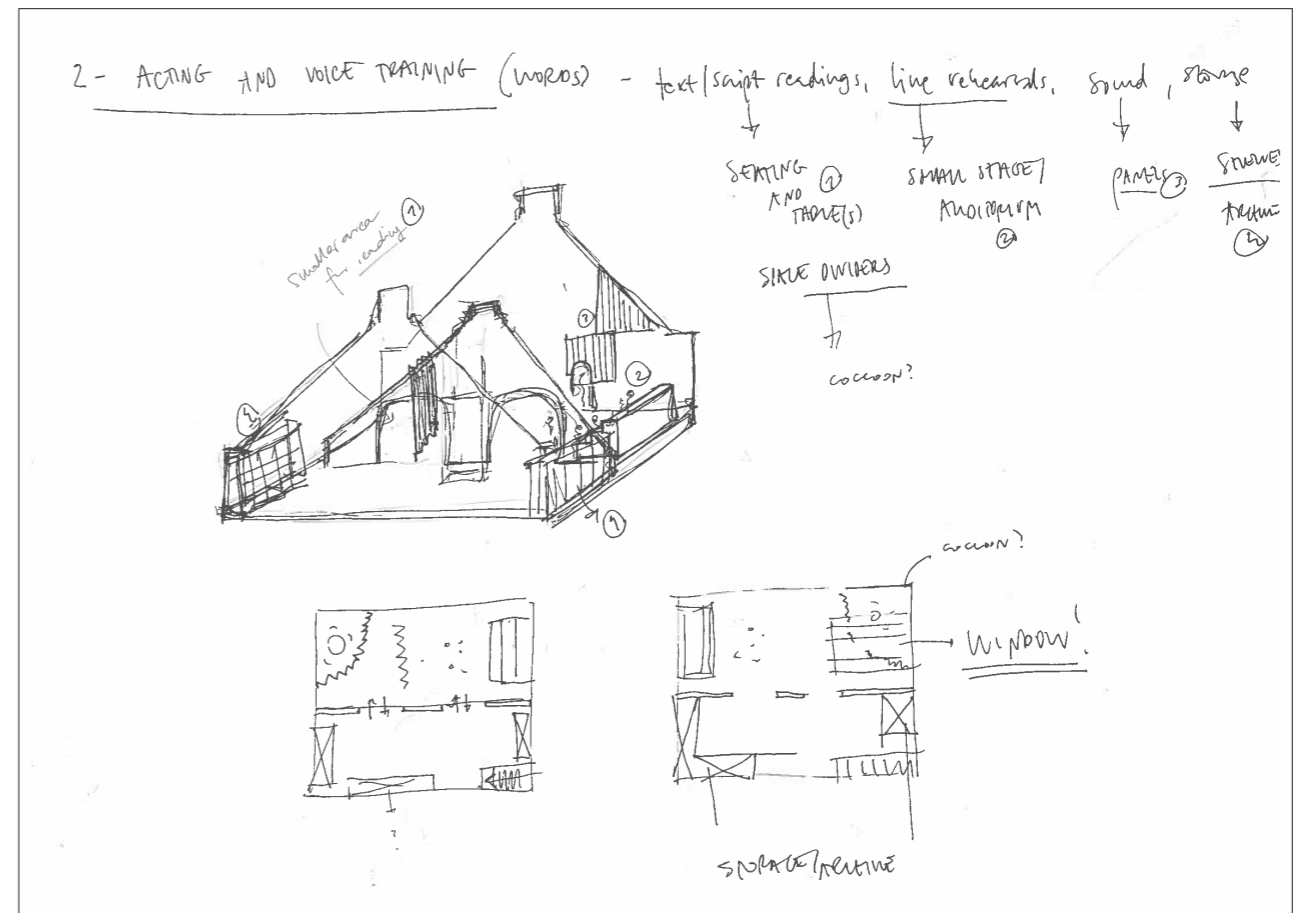 2 - ACTING AND VOICE TRAINING (WORDS) - text/script readings, live rehearsals, sound, storage
SEATING AND TABLE(S) 1
SMALL STAGE/ AUDITORIUM 2
PANELS 3
STORAGE ARCHIVE 4
SPACE DIVIDERS
COCCOON?
smaller area for reading 1
4
3
2
1
COCCOON?
WINDOW!
?
STORAGE/ARCHIVE